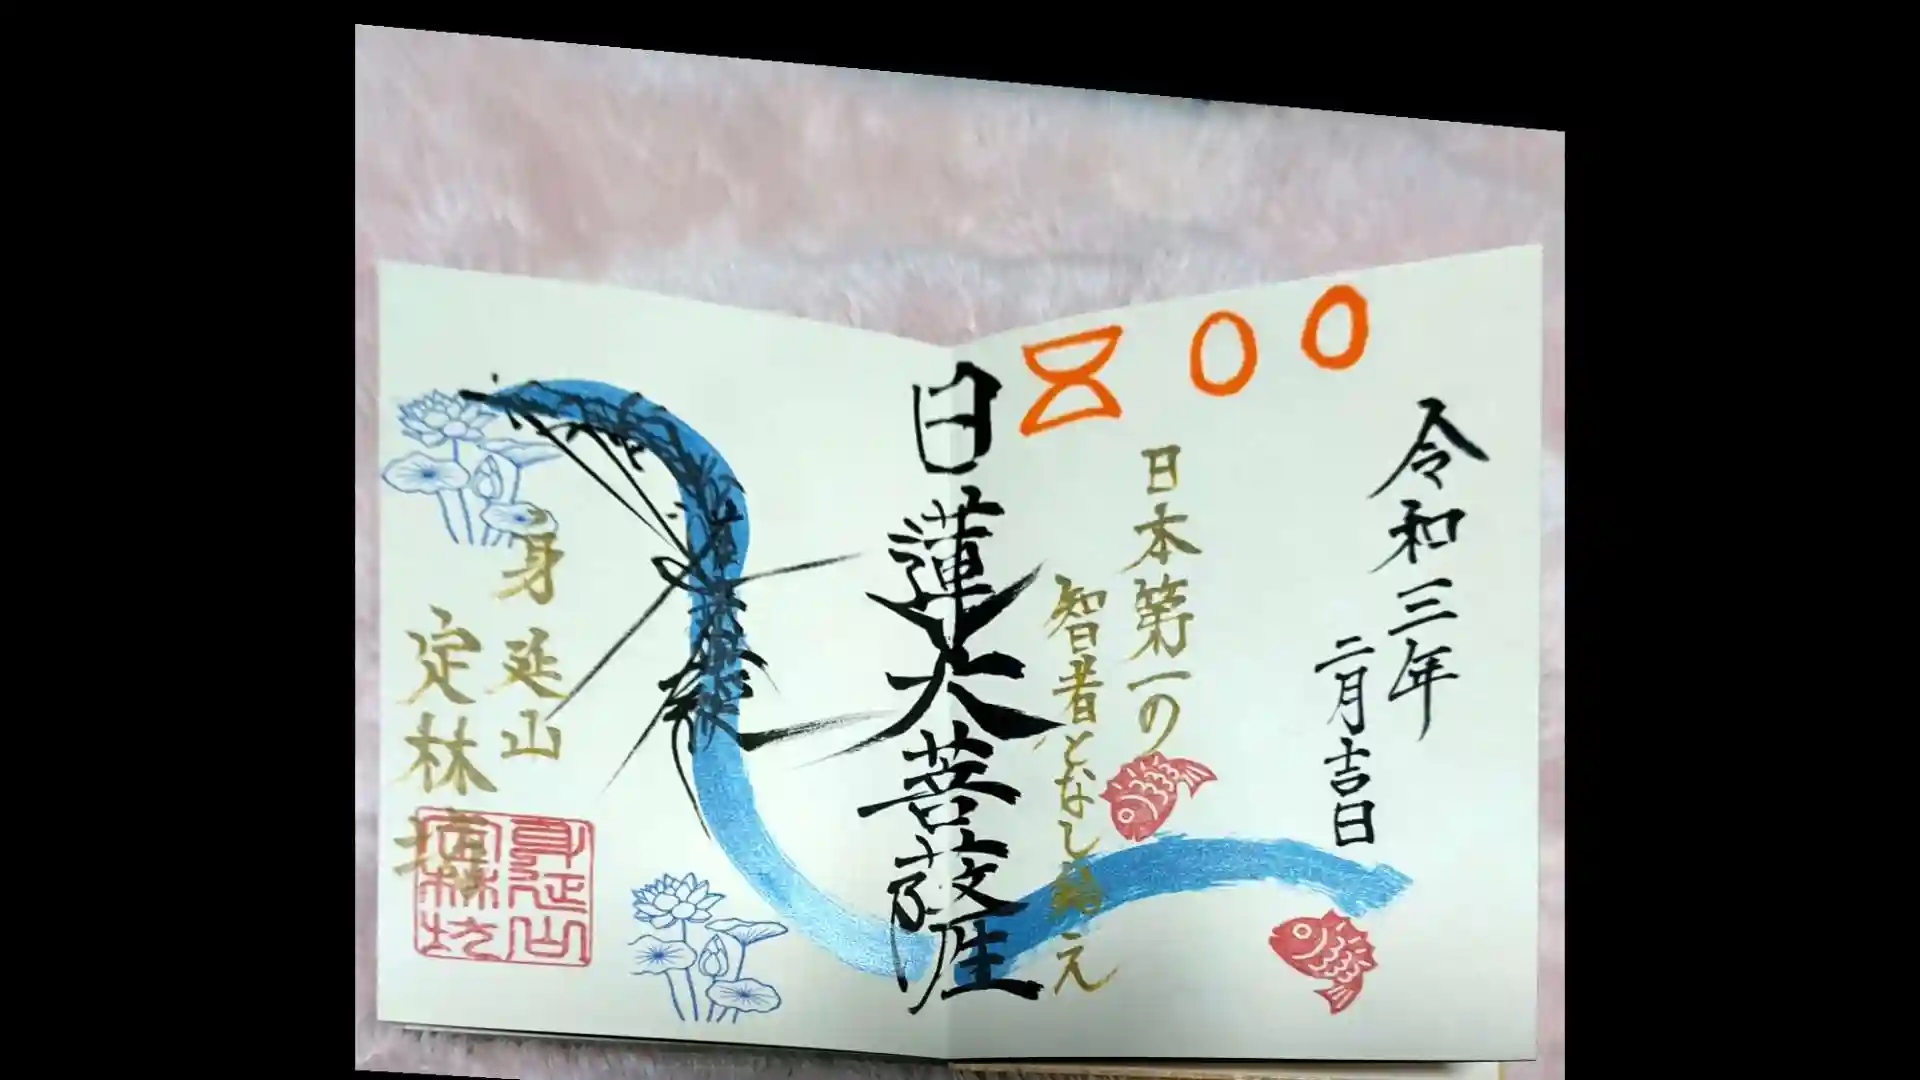 800
令和三年
二月吉日
日本第一の
智者となし給え
日蓮大菩薩
身延山
定林坊
身延山
定林坊